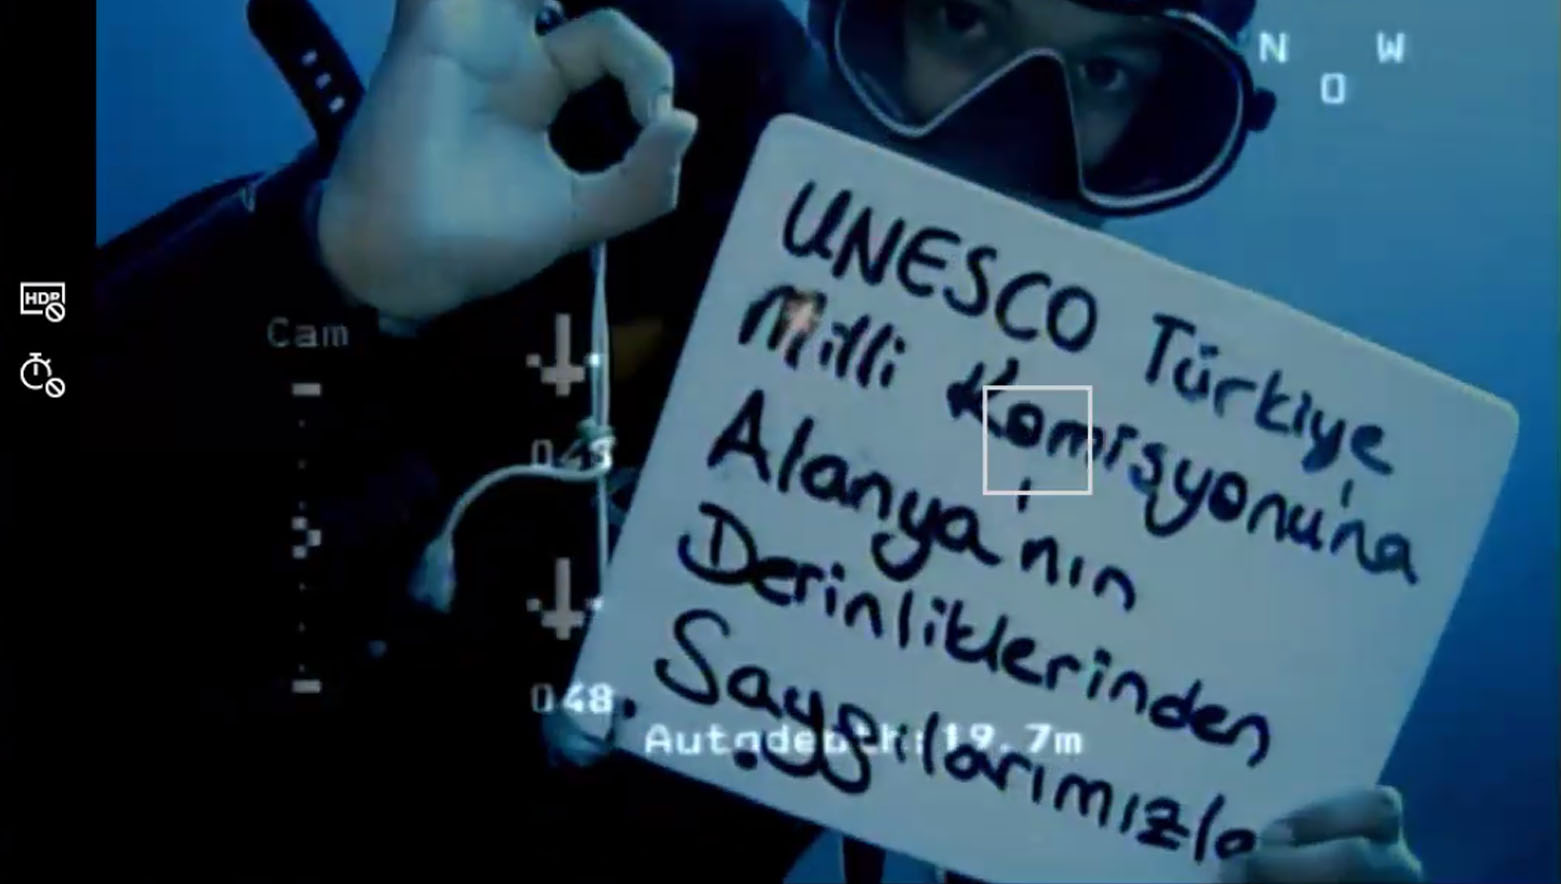 HDR
N W
O
Cam
048
048
Autodepth:19.7m
UNESCO Türkiye
Milli Komisyonu'na
Alanya'nın
Derinliklerinden
Saygılarımızla